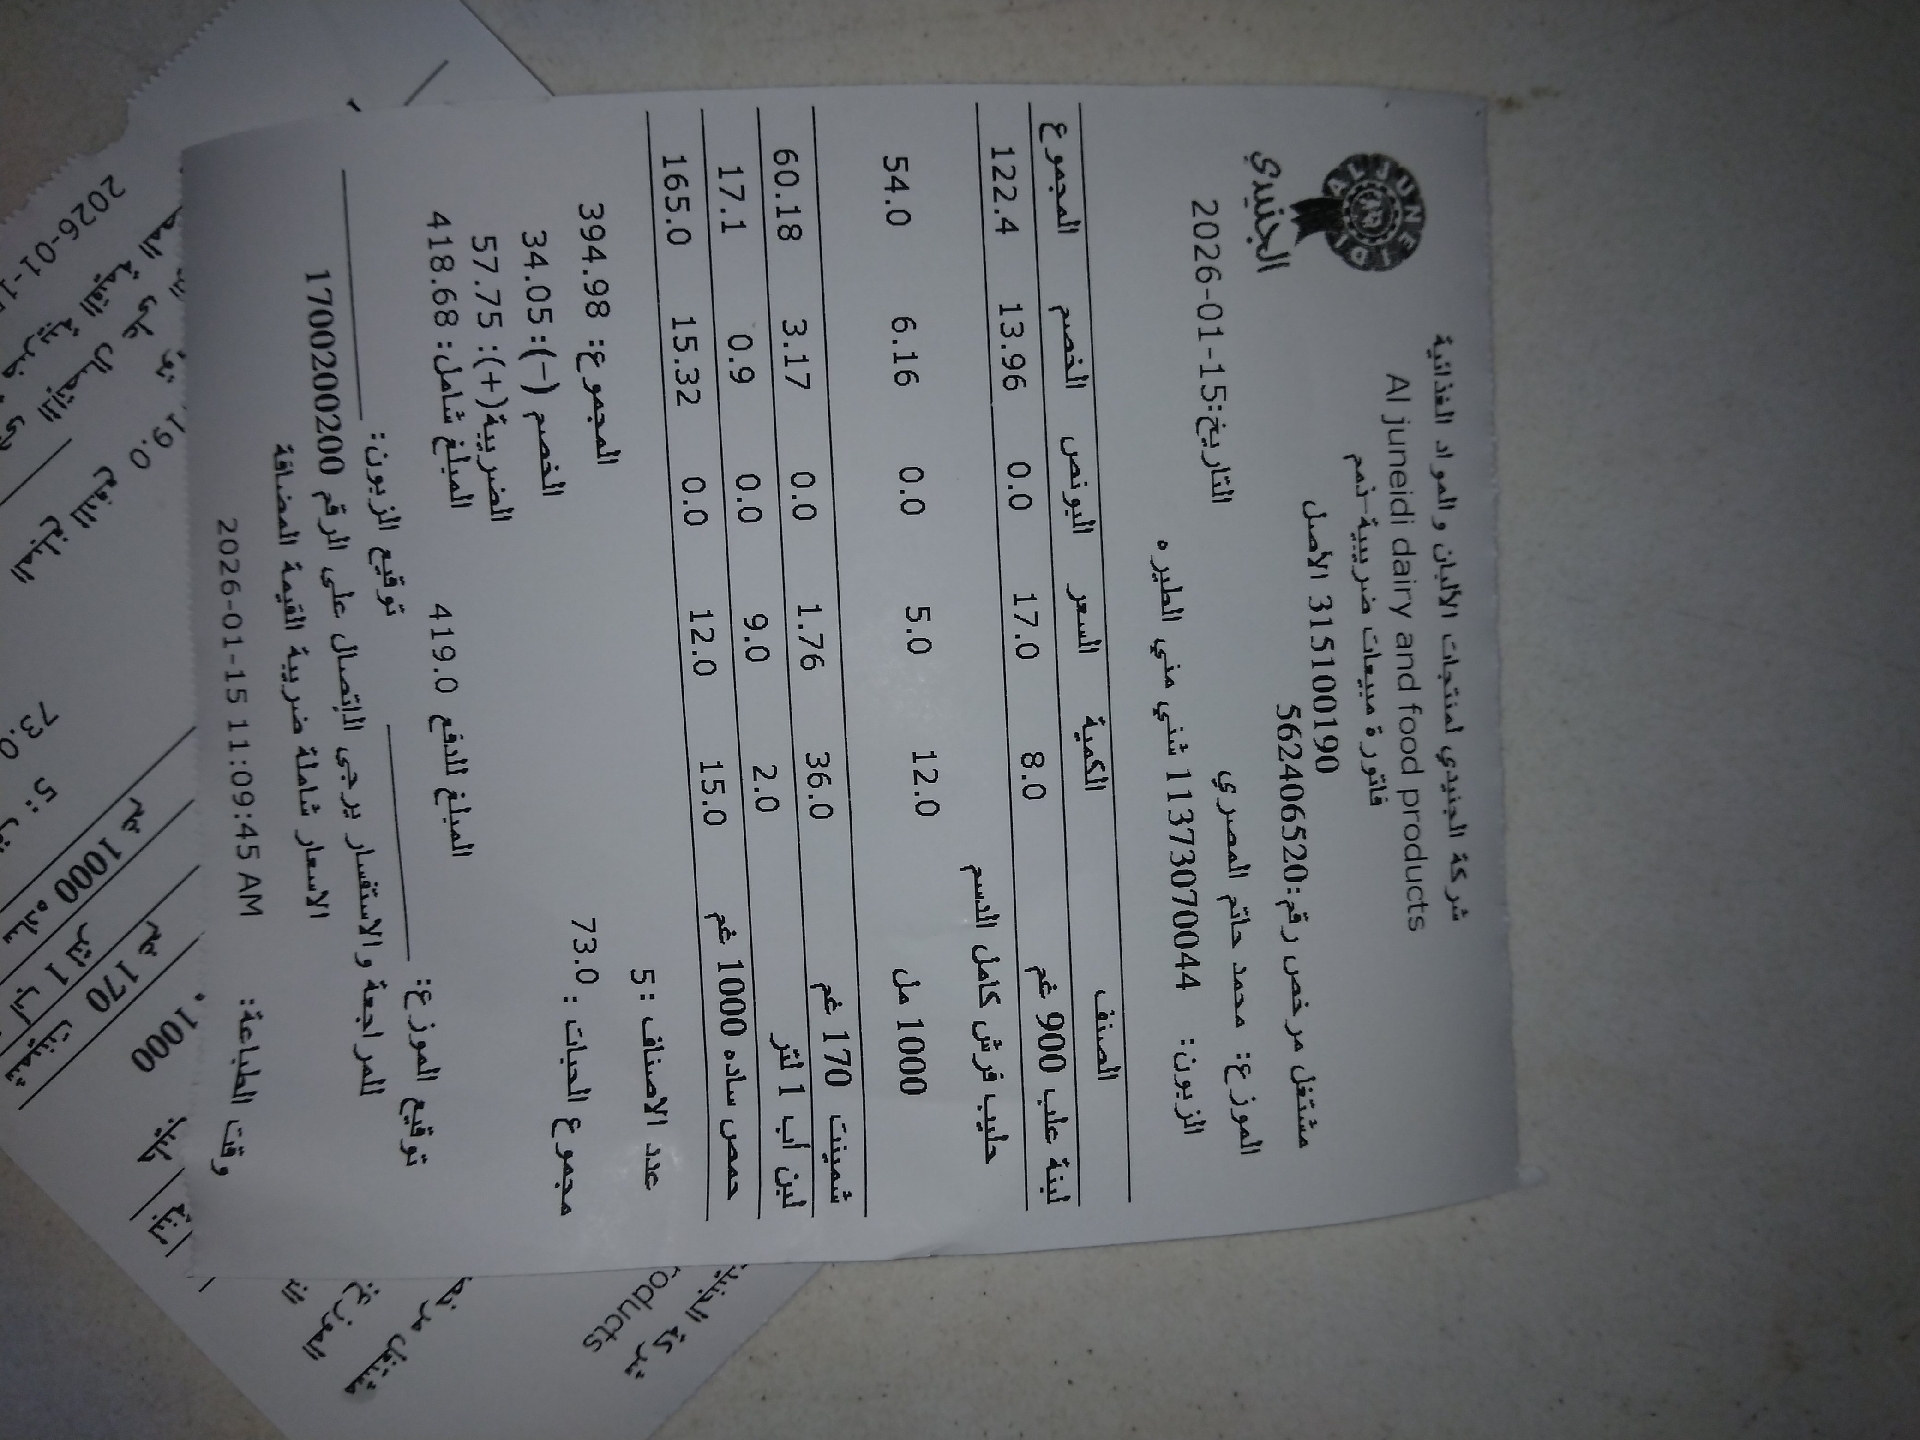 AL JUNEIDI
الجنيدي
شركة الجنيدي لمنتجات الألبان و المواد الغذائية
Al juneidi dairy and food products
فاتورة مبيعات ضريبية-ذمم
315100190 الأصل
مشتغل مرخص رقم:562406520
الموزع: محمد حاتم المصري التاريخ:2026-01-15
الزبون: 1137307044 شني مني الطيره
الصنف الكمية السعر البونص الخصم المجموع
لبنة علب 900 غم 8.0 17.0 0.0 13.96 122.4
حليب فرش كامل الدسم
1000 مل 12.0 5.0 0.0 6.16 54.0
شمينت 170 غم 36.0 1.76 0.0 3.17 60.18
لبن اب 1 لتر 2.0 9.0 0.0 0.9 17.1
حمص ساده 1000 غم 15.0 12.0 0.0 15.32 165.0
عدد الاصناف :5 المجموع: 394.98
مجموع الحبات : 73.0 الخصم (-): 34.05
الضريبة(+): 57.75
المبلغ للدفع 419.0 المبلغ شامل: 418.68
توقيع الموزع: توقيع الزبون:
للمراجعة و الاستفسار يرجى الاتصال على الرقم 1700200200
الاسعار شاملة ضريبة القيمة المضافة
وقت الطباعة: 2026-01-15 11:09:45 AM
المبلغ للدفع 19.0
73.0
5:
1000
170 غم
1 لتر
ساده 1000 غم